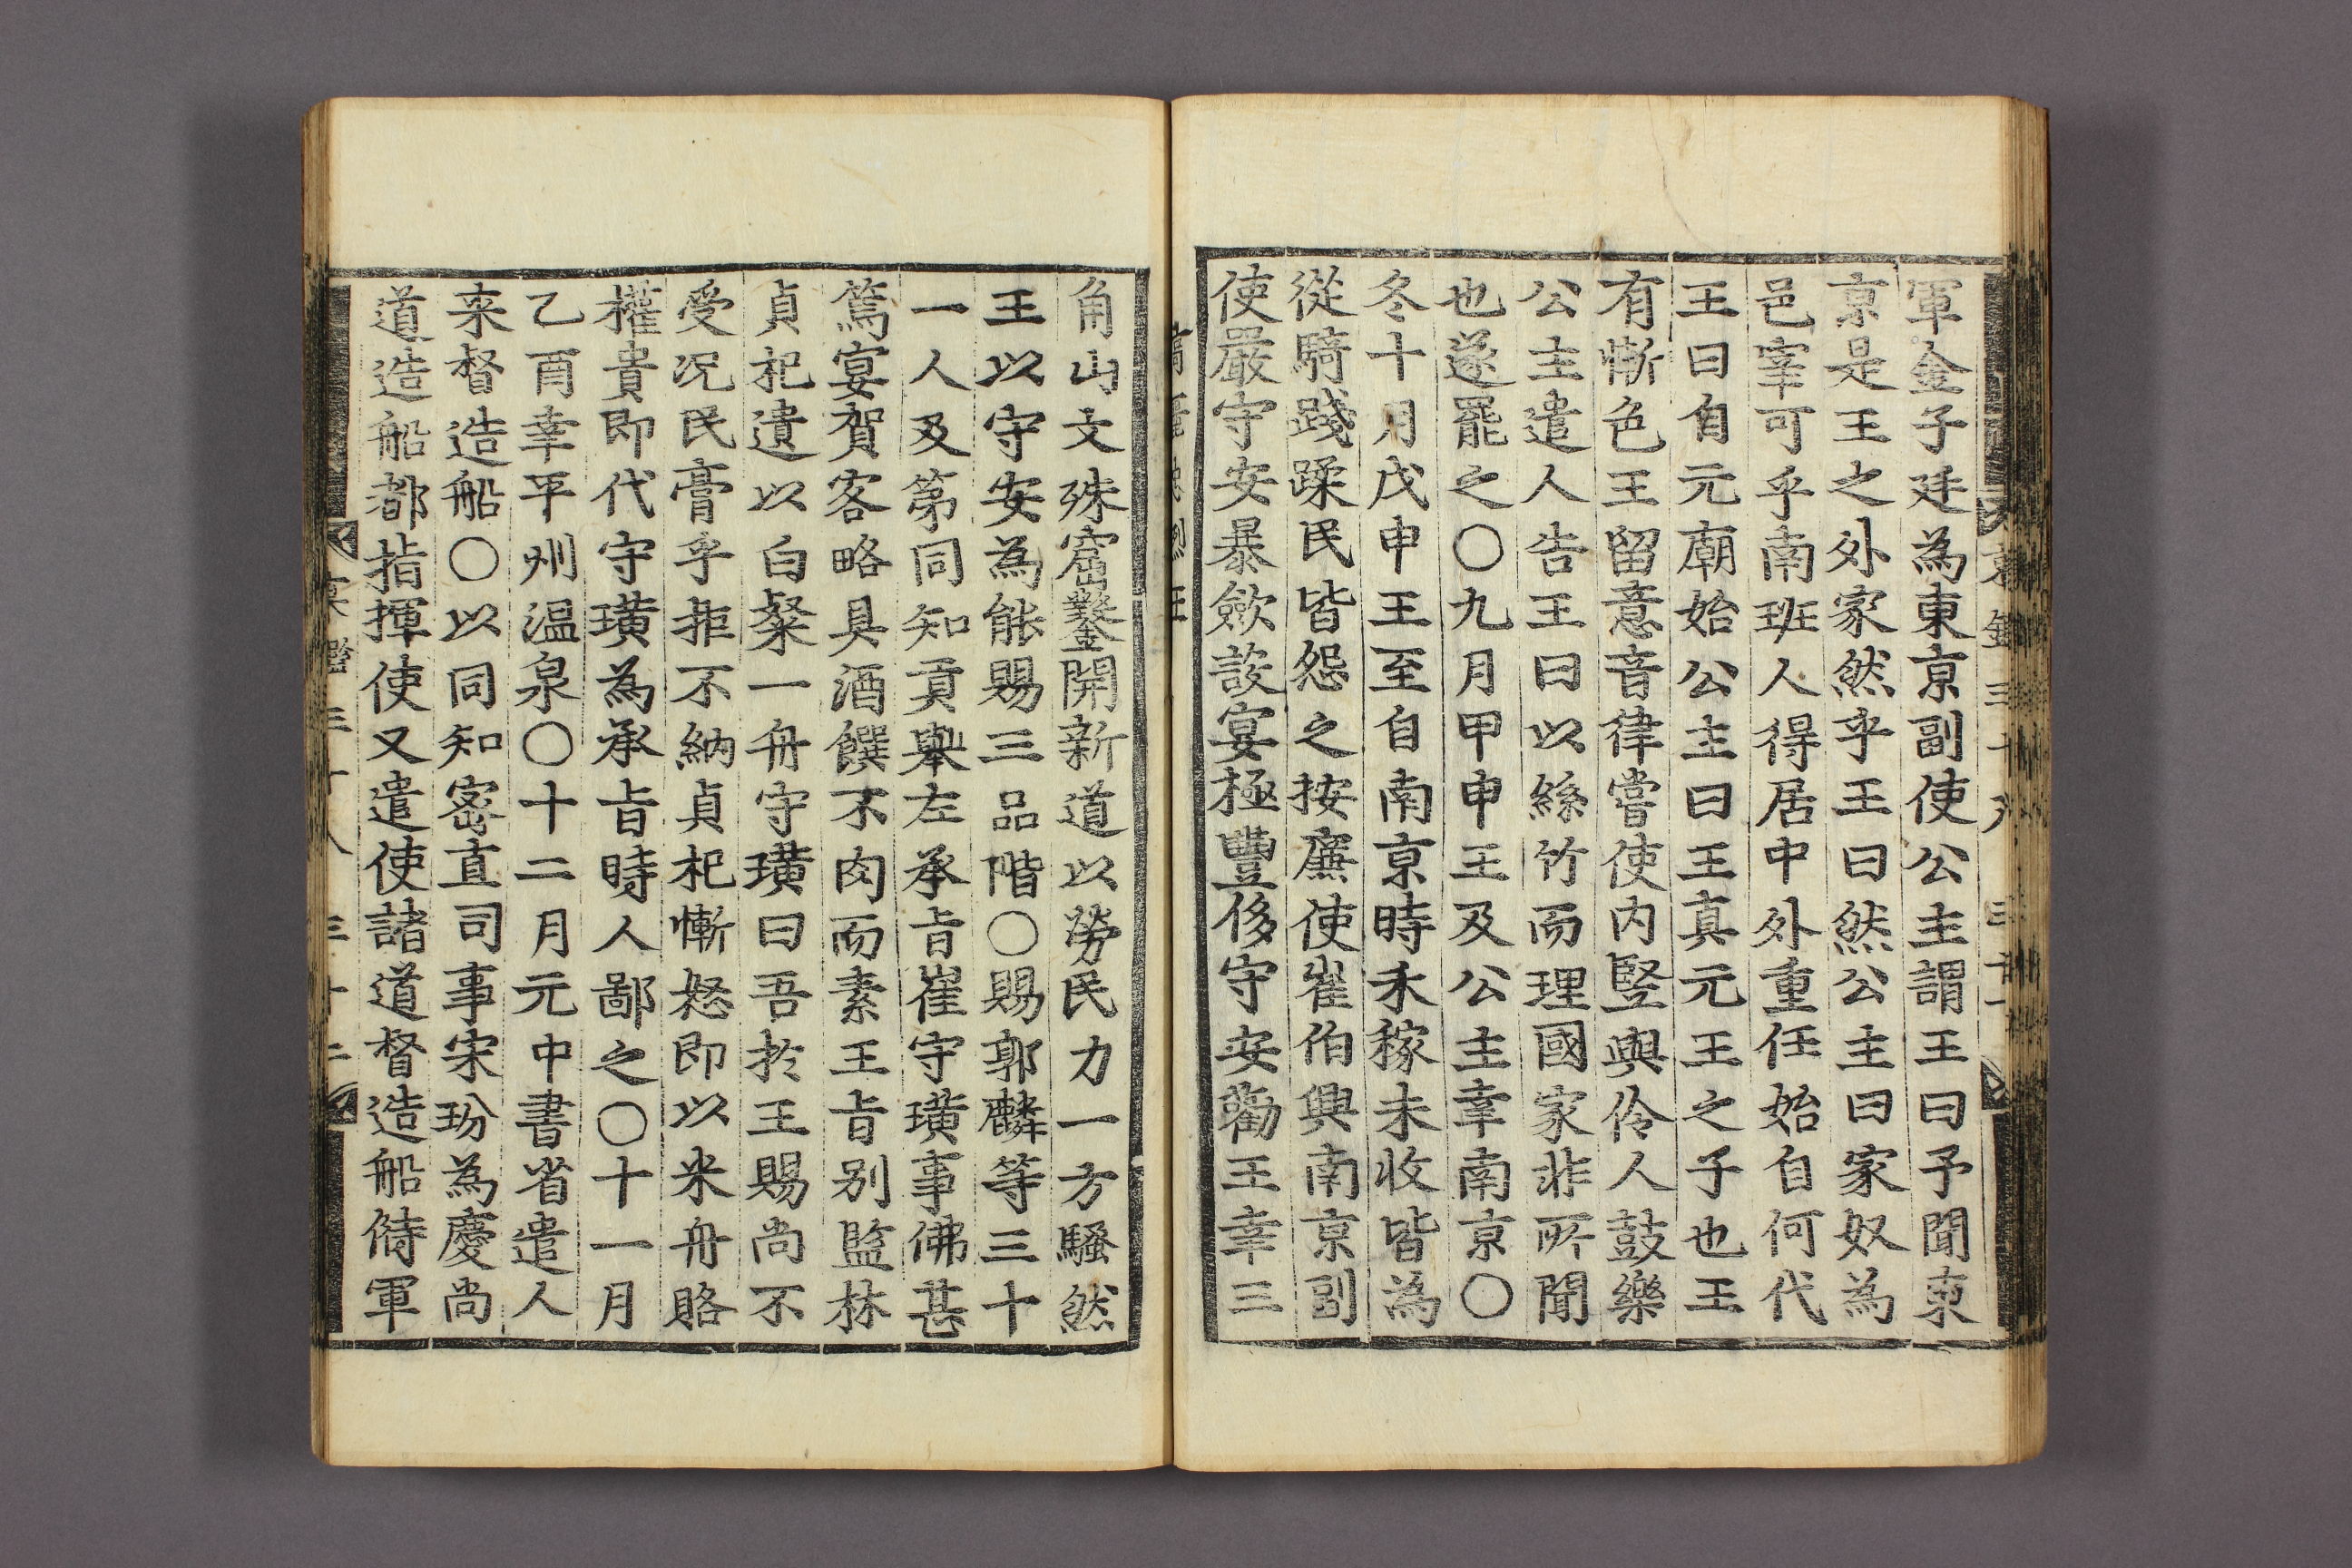 軍金子廷為東京副使公主謂王曰予聞東
京是王之外家然乎王曰然公主曰家奴為
邑宰可乎南班人得居中外重任始自何代
王曰自元廟始公主曰王真元王之子也王
有慚色王留意音律嘗使内竪與伶人鼓樂
公主遣人告王曰以絲竹而理國家非所聞
也遂罷之〇九月甲申王及公主幸南京〇
冬十月戊申王至自南京時禾稼未收皆為
從騎踐蹂民皆怨之按廉使崔伯興南京副
使嚴守安暴歛設宴極豐侈守安勸王幸三
角山文殊窟鑿開新道以勞民力一方騷然
王以守安為能賜三品階〇賜郭麟等三十
一人及第同知貢舉左承旨崔守璜事佛甚
篤宴賀客略具酒饌不肉而素王旨別監林
貞杞遺以白粲一舟守璜曰吾於王賜尚不
受况民膏乎拒不納貞杞慚怒即以米舟賂
權貴即代守璜為承旨時人鄙之〇十一月
乙酉幸平州温泉〇十二月元中書省遣人
来督造船〇以同知密直司事宋玢為慶尚
道造船都指揮使又遣使諸道督造船偫軍